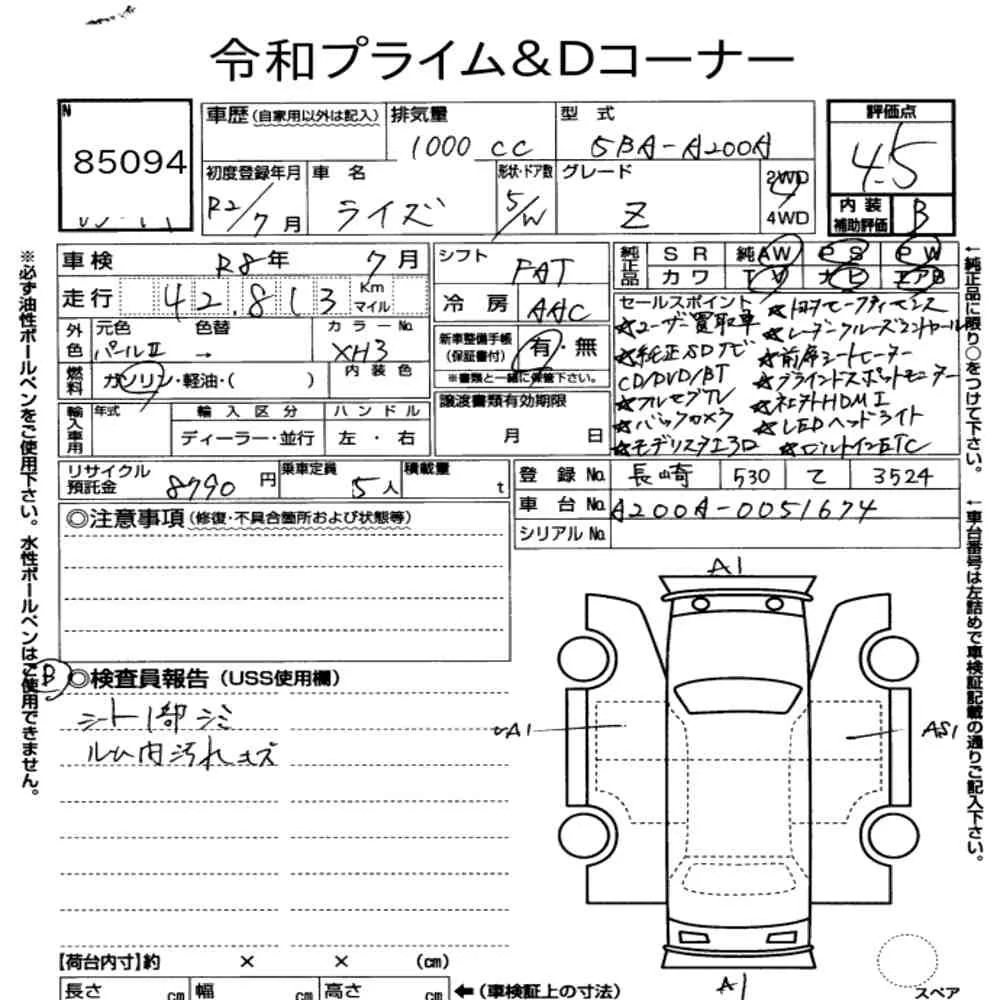 令和プライム&Dコーナー
N
85094
車歴 (自家用以外は記入)
排気量
1000 CC
型式
5BA-A200A
評価点
4.5
初度登録年月
R2/7月
車名
ライズ
形状・ドア数
5/W
グレード
Z
2WD
4WD
内装
補助評価
B
車検
R8年 7月
シフト
FAT
純正品
SR 純AW PS PW
カワ TV ナビ エアB
走行
42,813
Km
マイル
冷房
AAC
セールスポイント
★ユーザー買取車
★純正SDナビ
CD/DVD/BT
★フルセグTV
★バックカメラ
★モデリスタエアロ
★レーダークルーズコントロール
★前席シートヒーター
★ブラインドスポットモニター
★HDMI
★LEDヘッドライト
★ビルトインETC
外色
元色
パールⅡ
色替
→
カラーNo.
XH3
新車整備手帳
(保証書付)
有・無
※書類と一緒に保管下さい。
燃料
ガソリン・軽油・( )
内装色
譲渡書類有効期限
月 日
輸入車用
年式
輸入区分
ハンドル
ディーラー・並行
左・右
リサイクル
預託金
8790円
乗車定員
5人
積載量
t
登録No.
長崎 530 て 3524
車台No.
A200A-0051674
シリアルNo.
◎注意事項 (修復・不具合箇所および状態等)
B
◎検査員報告 (USS使用欄)
シート1部シミ
ルーム内汚れキズ
A1
A1
AS1
A1
【荷台内寸】約 × × (cm)
長さ cm 幅 cm 高さ cm
←(車検証上の寸法)
スペア
※必ず油性ボールペンをご使用下さい。水性ボールペンはご使用できません。
←純正品に限り○をつけて下さい。
←車台番号は左詰めで車検証記載の通りご記入下さい。